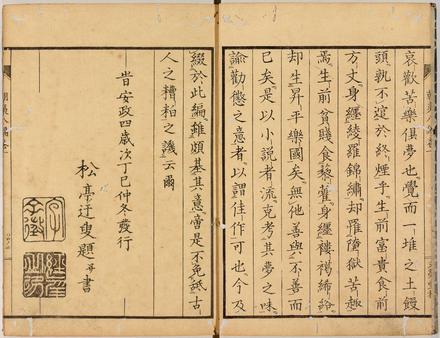 哀歡苦樂俱夢也覺而一堆之土饅
頭孰不逆於終煙乎生前富貴食前
方丈身纏綾羅錦繡却罹墮獄苦趣
焉生前貧賤食藜藿身纏褸褐絺綌
却生昇平樂國矣無他善與不善而
已矣是以小説者流克考其夢之味
諭勸懲之意者以謂佳作可也今及
綴於此編雖頗甚其意啻是不免舐古
人之糟粕之譏云爾
旹安政四歳次丁巳仲冬發行
松亭迂叟題并書